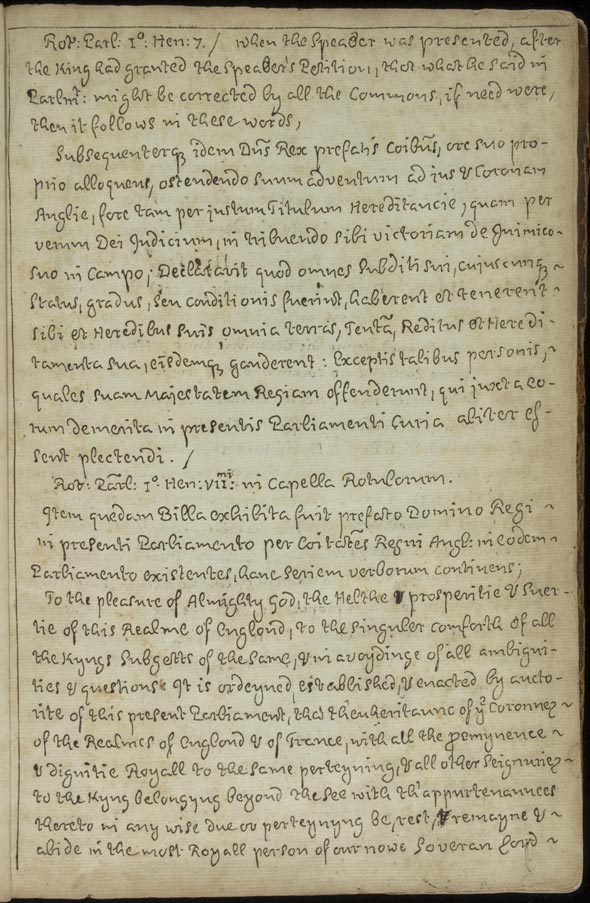 Rot: Parl: 1º. Hen: 7. / when the Speaker was presented, after
the King had granted the Speakers Petition, that what he said in
Parlmt: might be corrected by all the Commons, if need were,
then it follows in these words,
Subsequenterq idem Dus Rex prefatis Coibus, ore suo pro-
prio alloquens, ostendendo suum adventum ad ius & Coronam
Anglie, fore tam per justum Titulum Hereditancie, quam per
verum Dei Iudicium, in tribuendo sibi victoriam de Inimico
suo in Campo; Declaravit quod omnes Subditi sui, cujuscunq ~
Status, gradus, seu conditionis fuerint, haberent et tenerent ~
sibi et Heredibus suis omnia terras, Tenta, Reditus et Heredi-
tamenta sua, eisdemq gauderent: Exceptis talibus personis, ~
quales suam Majestatem Regiam offenderunt, qui juxta eo-
rum demerita in presentis Parliamenti Curia aliter es-
sent plectendi. /
Rot: Parl: 1º. Hen: vii.mi: in Capella Rotulorum.
Item quedam Billa exhibita fuit prefato Domino Regi ~
in presenti Parliamento per Coitates Regni Angl: in eodem ~
Parliamento existentes, hanc seriem verborum continens;
To the pleasure of Almighty God, the Helthe & prosperitie & Suer-
tie of this Realme of England, to the singuler comforth of all
the Kyngs Subgetts of the same, & in avoydinge of all ambigui-
ties & questions: It is ordeyned established, & enacted by aucto-
rite of this present Parliament, that thenheritaunc of ye Coronnez ~
of the Realmes of England & of France, with all the preemynence ~
& dignitie Royall to the same perteyning, & all other Seignuriez ~
to the Kyng belongyng beyond the See with th'appurtenances
thereto in any wise due or perteynyng be, rest, & remayne & ~
abide in the most Royall person of our nowe Soveran Lord ~